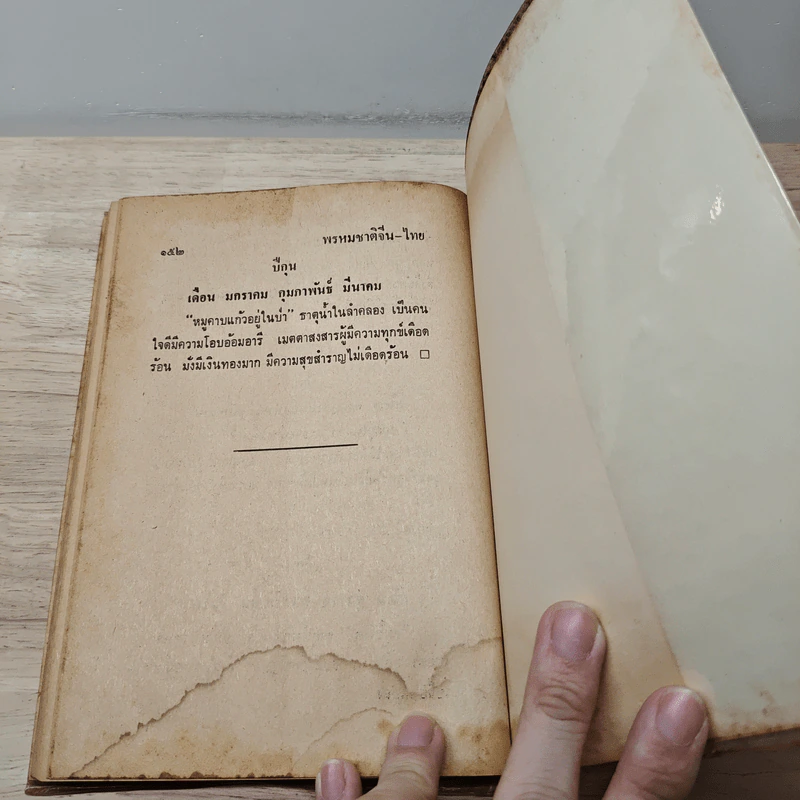 ๑๕๒
พรหมชาติจีน-ไทย
ปีกุน
เดือน มกราคม กุมภาพันธ์ มีนาคม
“หมูคาบแก้วอยู่ในป่า” ธาตุน้ำในลำคลอง เป็นคน
ใจดีมีความโอบอ้อมอารี เมตตาสงสารผู้มีความทุกข์เดือด
ร้อน มั่งมีเงินทองมาก มีความสุขสำราญไม่เดือดร้อน □